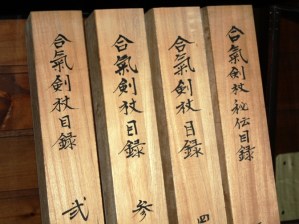 合氣剣杖秘伝目録
合氣剣杖目録
四
合氣剣杖目録
参
合氣剣杖目録
弐